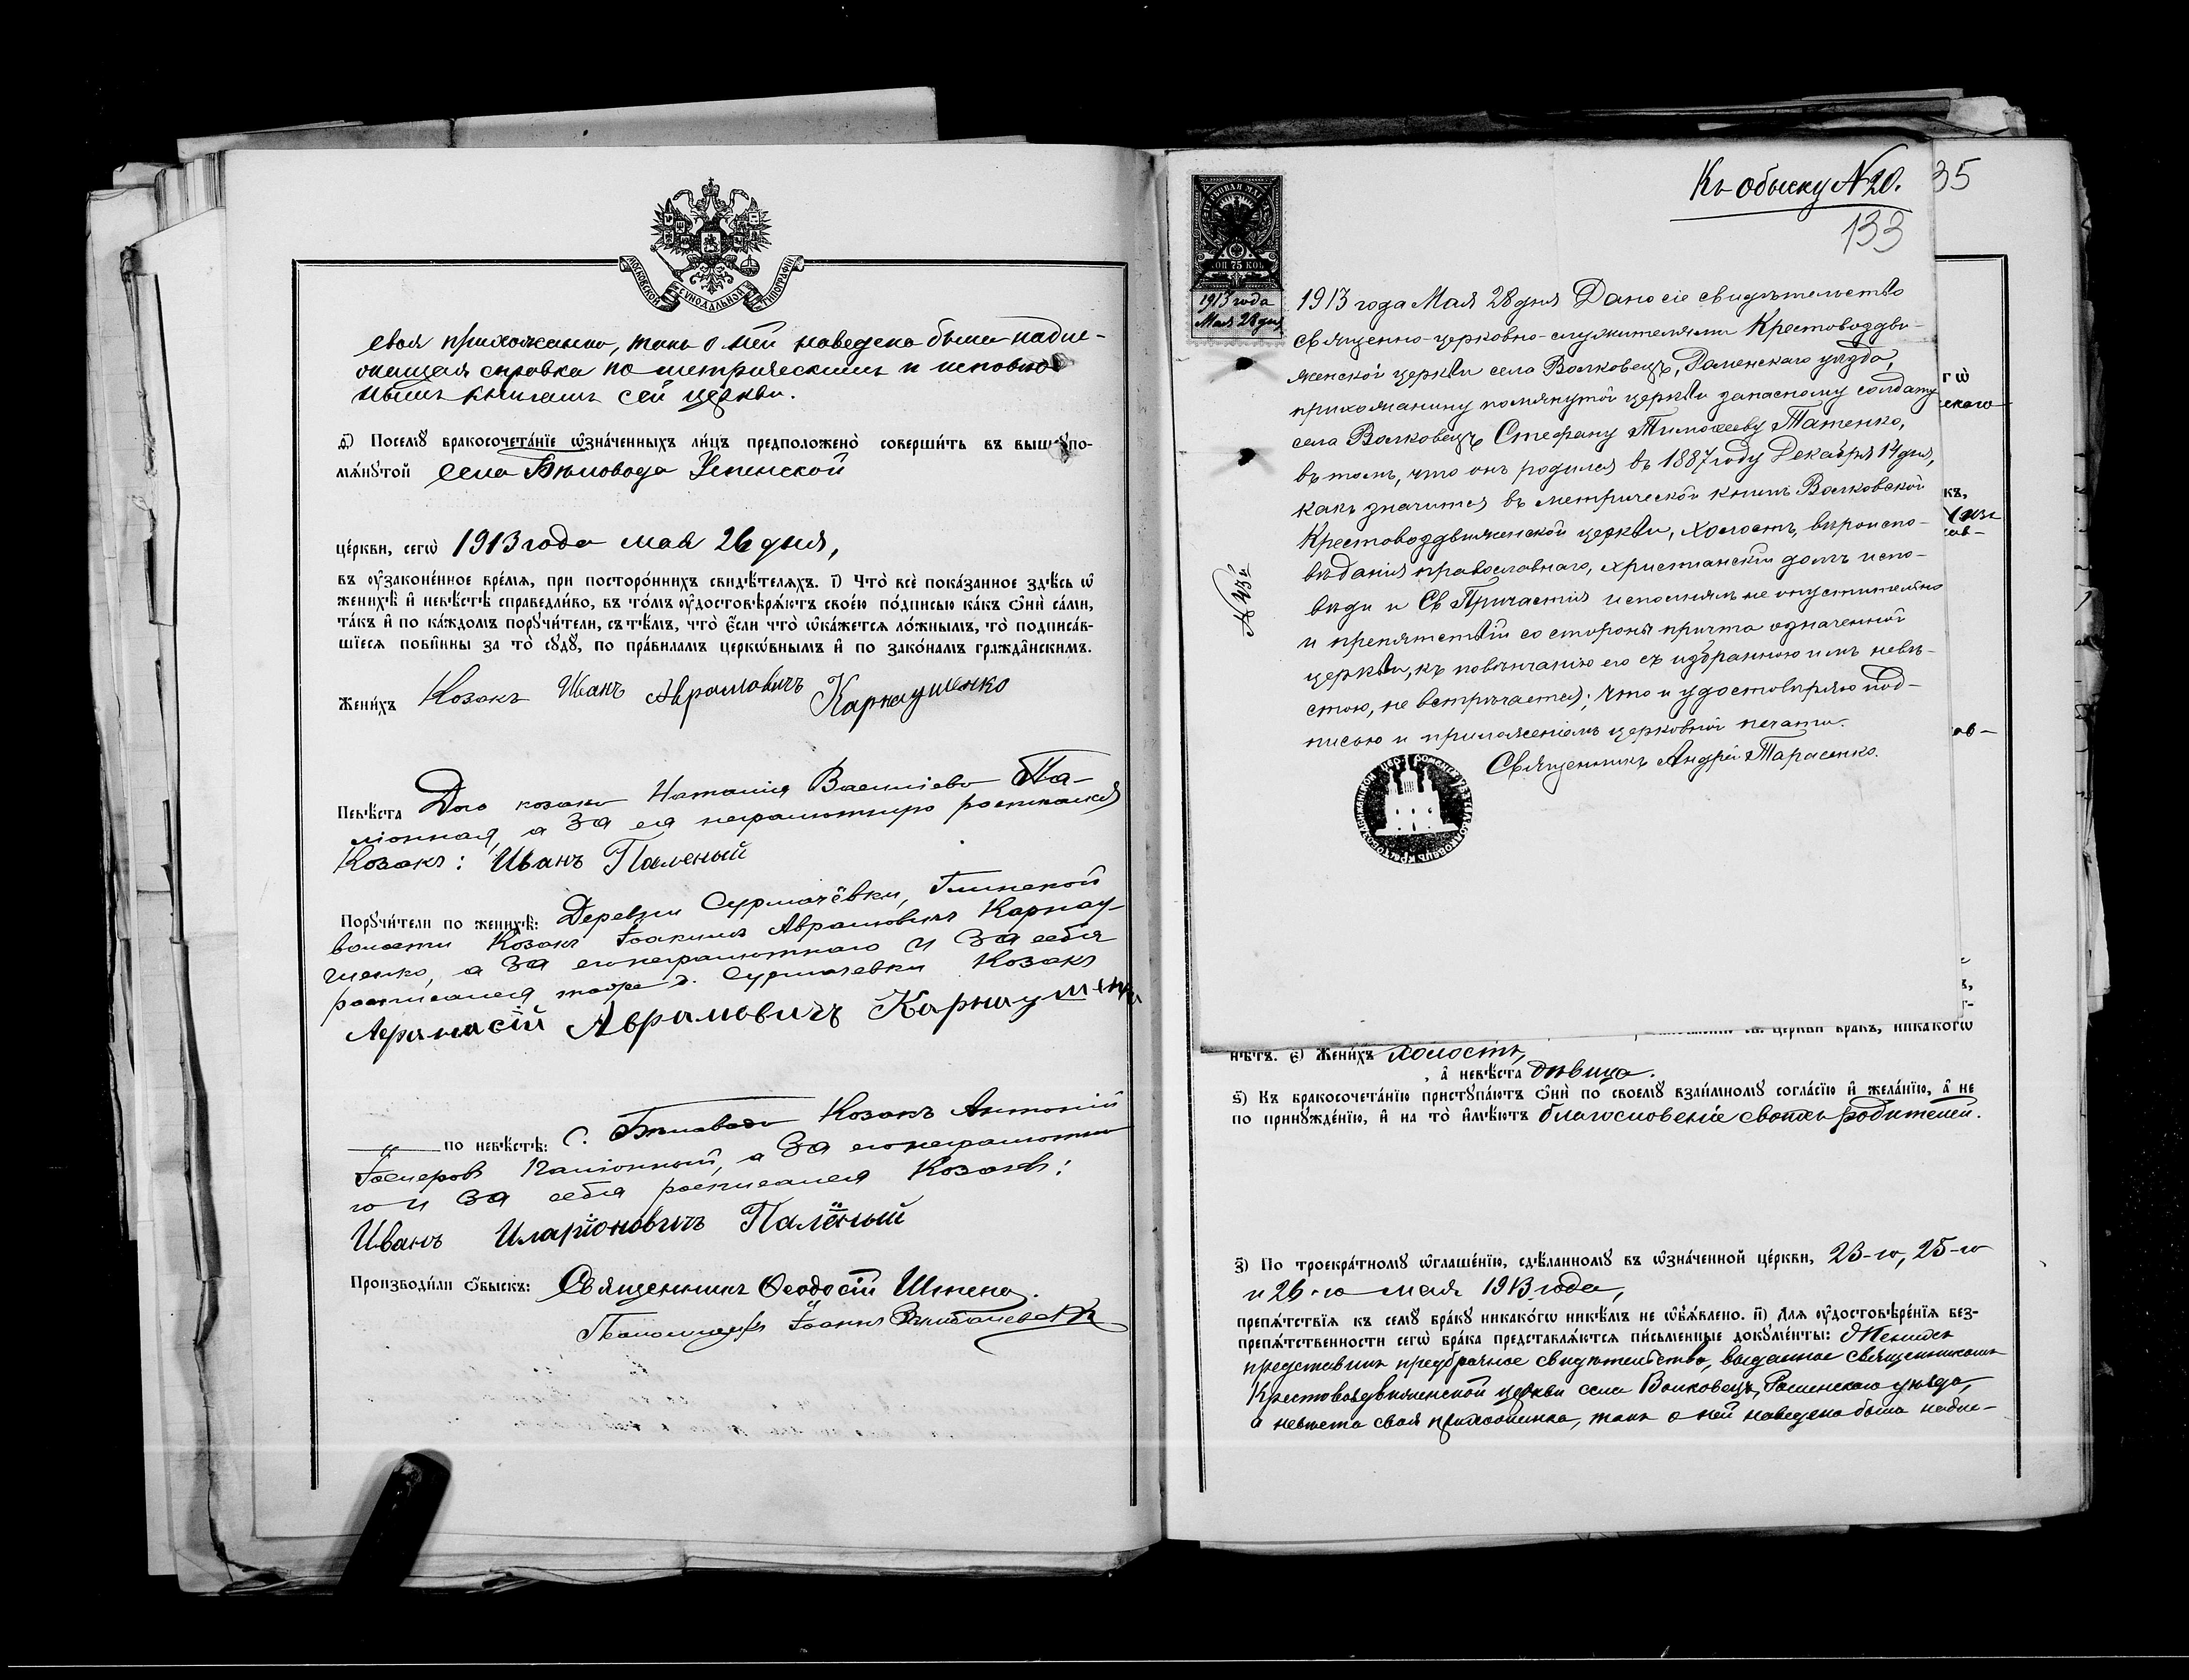 МОСКОВСКОЙ СѴНОДАЛЬНОЙ ТИПОГРАФІИ
своя прихожанка, токъ о ней наведена была надле-
жащая справка по метрическимъ и исповѣд
нымъ книгамъ сей церкви.
ѳ҃) Посемꙋ̀ бракосочета́нїе ѡ҆зна́ченныхъ ли́цъ предположено̀ соверши́ть въ вышеꙋпо-
мѧ́нꙋтой села Бѣловода Успенской
це́ркви, сегѡ̀ 1913 года мая 26 дня,
въ ᲂу҆зако́ненное вре́мѧ, при посторо́ннихъ свидѣ́телѧхъ. і҃) Что̀ всѐ пока́занное здѣ́сь ѡ҆
женихѣ̀ и҆ невѣ́стѣ справедли́во, въ то́мъ ᲂу҆достовѣрѧ́ютъ свое́ю по́дписью ка́къ ѻ҆нѝ са́ми,
та́къ и҆ по ка́ждомъ порꙋчи́тели, съ тѣ́мъ, что̀ є҆́сли что̀ ѡ҆ка́жется ло́жнымъ, то̀ подписа́в-
шїеся пови́нны за то̀ сꙋдꙋ̀, по пра́виламъ церкѡ́внымъ и҆ по зако́намъ гражда̑нскимъ.
Жени́хъ Козакъ Иванъ Аврамовичъ Карнаушенко
Невѣ́ста Дочь козака Наталія Василіева Па-
ліонная, а за ея неграмотную росписался
Козакъ: Иванъ Паленый
Порꙋчи́тели по женихѣ̀: Деревни Сурмачёвки, Глинской
волости Козакъ Іоакимъ Аврамовичъ Карнау-
шенко, а за его неграмотнаго и за себя
росписался тойже д. Сурмачевки Козакъ
Афанасій Аврамовичъ Карнаушенко
" по невѣ́стѣ: С. Бѣловода Козакъ Антоній
Паліонный, а за его неграмотна
го и за себя росписался Козакъ:
Иванъ Иларіоновичъ Палёный
Производи́ли ѻ҆́быскъ: Священникъ Ѳеодосій
Псаломщикъ Іоаннъ
Къ обыску №20.
35
133
75 КОП
1913 года
Мая 28 дня
№ 45й
1913 года Мая 28 дня Дано сіе свидѣтельство
священно-церковно-служителями Крестовоздви-
женской церкви села Волковецъ, Роменскаго уѣзда,
прихожанину помянутой церкви запасному солдату
села Волковецъ Стефану Тимоѳееву Татенко,
въ томъ, что онъ родился въ 1887 году Декабря 14 дня,
какъ значится въ метрической книгѣ Волковской
Крестовоздвиженской церкви, холостъ, вѣроиспо-
вѣданія православнаго, христіанскій долгъ испо-
вѣди и Св Причастія исполнялъ не опустительно
и препятствій со стороны причта означенной
церкви, къ повѣнчанію его съ избранною имъ невѣ-
стою, не встрѣчается; что и удостовѣряю под-
писью и приложеніемъ церковной печати.
Священникъ Андрей Тарасенко.
гѡ
скаго
къ,
ов-
це́ркви бра́къ, никако́гѡ
нѣ́тъ. є҃) Жени́хъ холостъ,
, а҆ невѣ́ста дѣвица.
ѕ҃) Къ бракосочета́нїю приступа́ютъ ѻ҆нѝ по своемꙋ̀ взаи́мномꙋ согла́сїю и҆ жела́нїю, а҆ не
по принꙋжде́нїю, и҆ на то̀ и҆мѣ́ютъ благословеніе своихъ родителей.
з҃) По троекра́тномꙋ ѡ҆глаше́нїю, сдѣ́ланномꙋ въ ѡ҆зна́ченной це́ркви, 23-го, 25-го
и 26-го мая 1913 года,
препѧ́тствїѧ къ семꙋ̀ бра́кꙋ никако́гѡ никѣ́мъ не ѡ҆б̾ѧ́влено. и҃) Для ᲂу҆достовѣре́нїѧ без-
препѧ́тственности сегѡ̀ бра́ка представлѧ́ются пи́сьменные докꙋме́нты: Женихъ
представилъ предбрачное свидѣтельство, выданное священникомъ
Крестовоздвиженской церкви села Волковецъ, Роменскаго уѣзда,
а невѣста своя прихожанка, токъ о ней наведена была надле-